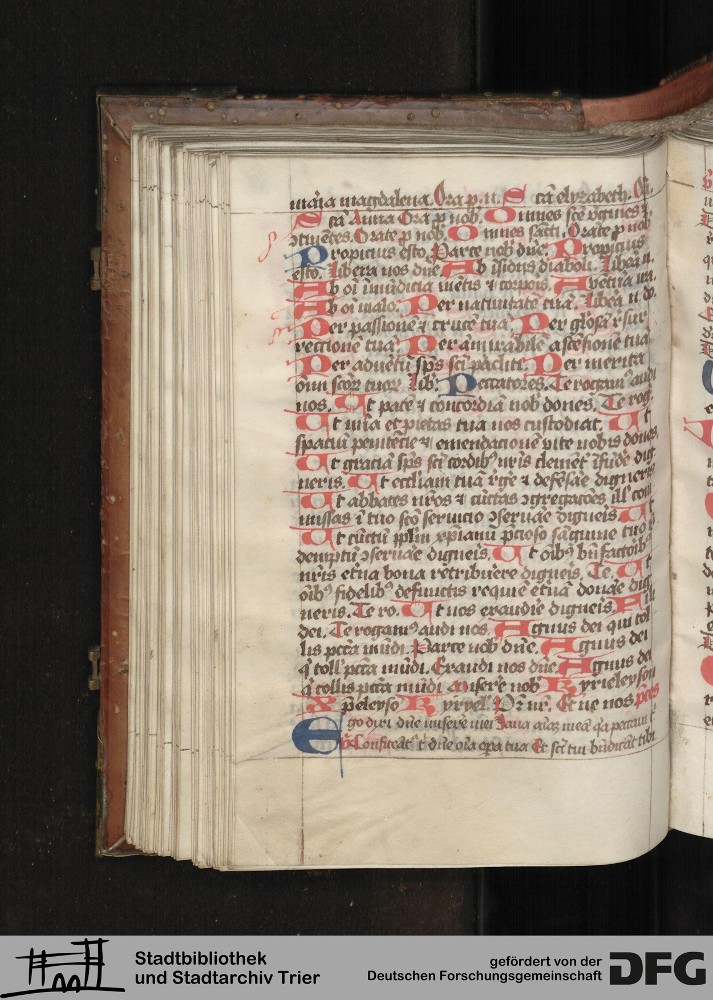 maria magdalena. Ora p. n. Sctā elyzabeth. Or.
Sctā Anna Ora p nob. Omnes scē v̄gines ⁊
ꝯtinētes. Orate p nob. Omnes sācti. Orate p nob
Propicius esto. Parce nob dnē. Propicius
esto. Libera nos dnē. Ab īsidiis diaboli. Libea n.
Ab oī īmūdicia mētis ⁊ corpois. A
Ab oī malo. Per natiuitatē tuā. Libea n. do.
Per passionē ⁊ crucē tuā. Per glōsā rsur
rectionē tuā. Per āmirabilē ascēsionē tuā
Per aduētū sp̄s scī pacliti. Per merita
omī scōꝝ tuoꝝ. Lib. Peccatores. Te rogamꝰ audi
nos. Ut pacē ⁊ concordiā nob dones. Te rog.
Ut mīa et pietas tua nos custodiat. Ut
spatiū penitētie ⁊ emendationē vite nobis dones
Ut gratiā sp̄s scī cordibꝰ nr̄is clemēt īfūdē dig
neris. Ut eccliam tuā r̄ge ⁊ defēsae digneris
Ut abbates nr̄os ⁊ cūctas ꝯgregatōes ill' com
missas ī tuo scō seruicio ꝯseruae digneis. Ut
Ut cūctū pplm xpianū pcioso sāguine tuo r
demptū ꝯseruae digneis. Ut oībꝰ bn̄factoībꝰ
nr̄is etna bona retribuere digneis. Te. Ut
oībꝰ fidelibꝰ defunctis requiē etnā donae dig
neris. Te ro. Ut nos exaudie digneis. Fili
dei. Te rogamꝰ audi nos. Agnus dei qui tol
lis pctā mūdi. Parce nob dnē. Agnus dei
q' toll' pctā mūdi. Exaudi nos dnē. Agnus dei
q' tollis pctā mūdi Misere nob Kyrieleyson
Xpeleyso Kyryel. Pr nr. Et ne nos pces
Ego dixi dnē misere mei Sana aīaz meā qa peccaui t'
Confiteāt' t' dnē oīa opa tua Et scī tui bn̄dicāt tibi
Stadtbibliothek
und Stadtarchiv Trier
gefördert von der
Deutschen Forschungsgemeinschaft
DFG